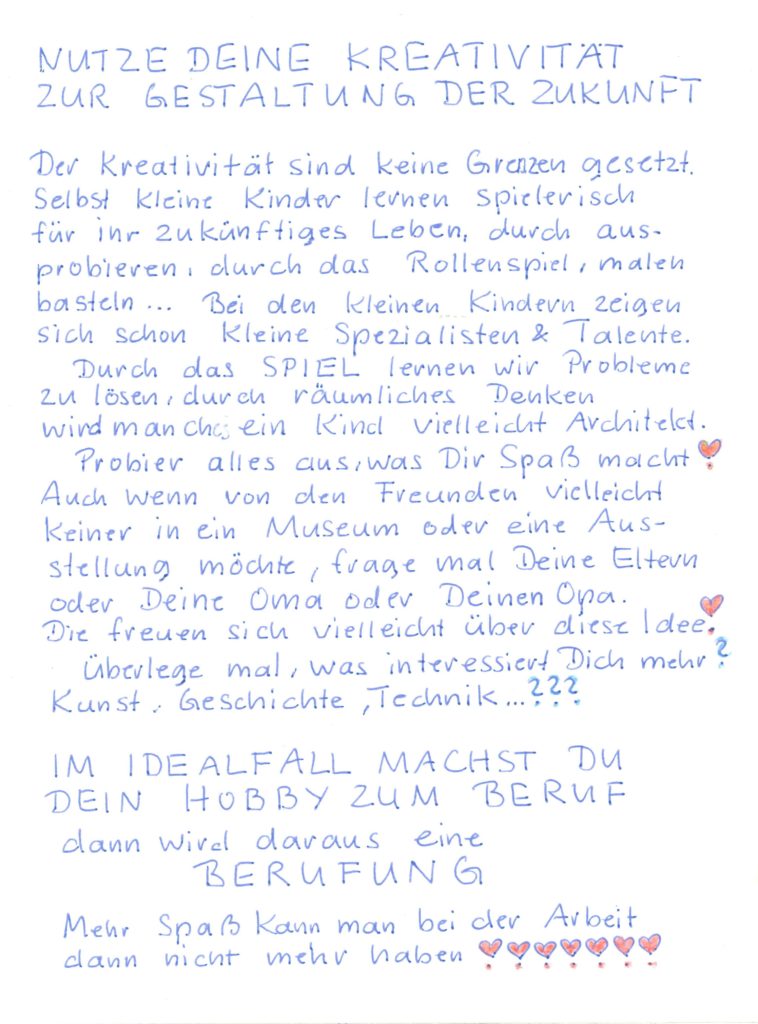 NUTZE DEINE KREATIVITÄT
ZUR GESTALTUNG DER ZUKUNFT
Der Kreativität sind keine Grenzen gesetzt.
Selbst kleine Kinder lernen spielerisch
für ihr zukünftiges Leben, durch aus-
probieren, durch das Rollenspiel, malen
basteln... Bei den kleinen Kindern zeigen
sich schon kleine Spezialisten & Talente.
Durch das SPIEL lernen wir Probleme
zu lösen, durch räumliches Denken
wird manch ein Kind vielleicht Architekt.
Probier alles aus, was Dir Spaß macht❣
Auch wenn von den Freunden vielleicht
keiner in ein Museum oder eine Aus-
stellung möchte, frage mal Deine Eltern
oder Deine Oma oder Deinen Opa.
Die freuen sich vielleicht über diese Idee❣
Überlege mal, was interessiert Dich mehr?
Kunst, Geschichte, Technik...???
IM IDEALFALL MACHST DU
DEIN HOBBY ZUM BERUF
dann wird daraus eine
BERUFUNG
Mehr Spaß kann man bei der Arbeit
dann nicht mehr haben ❣❣❣❣❣❣❣